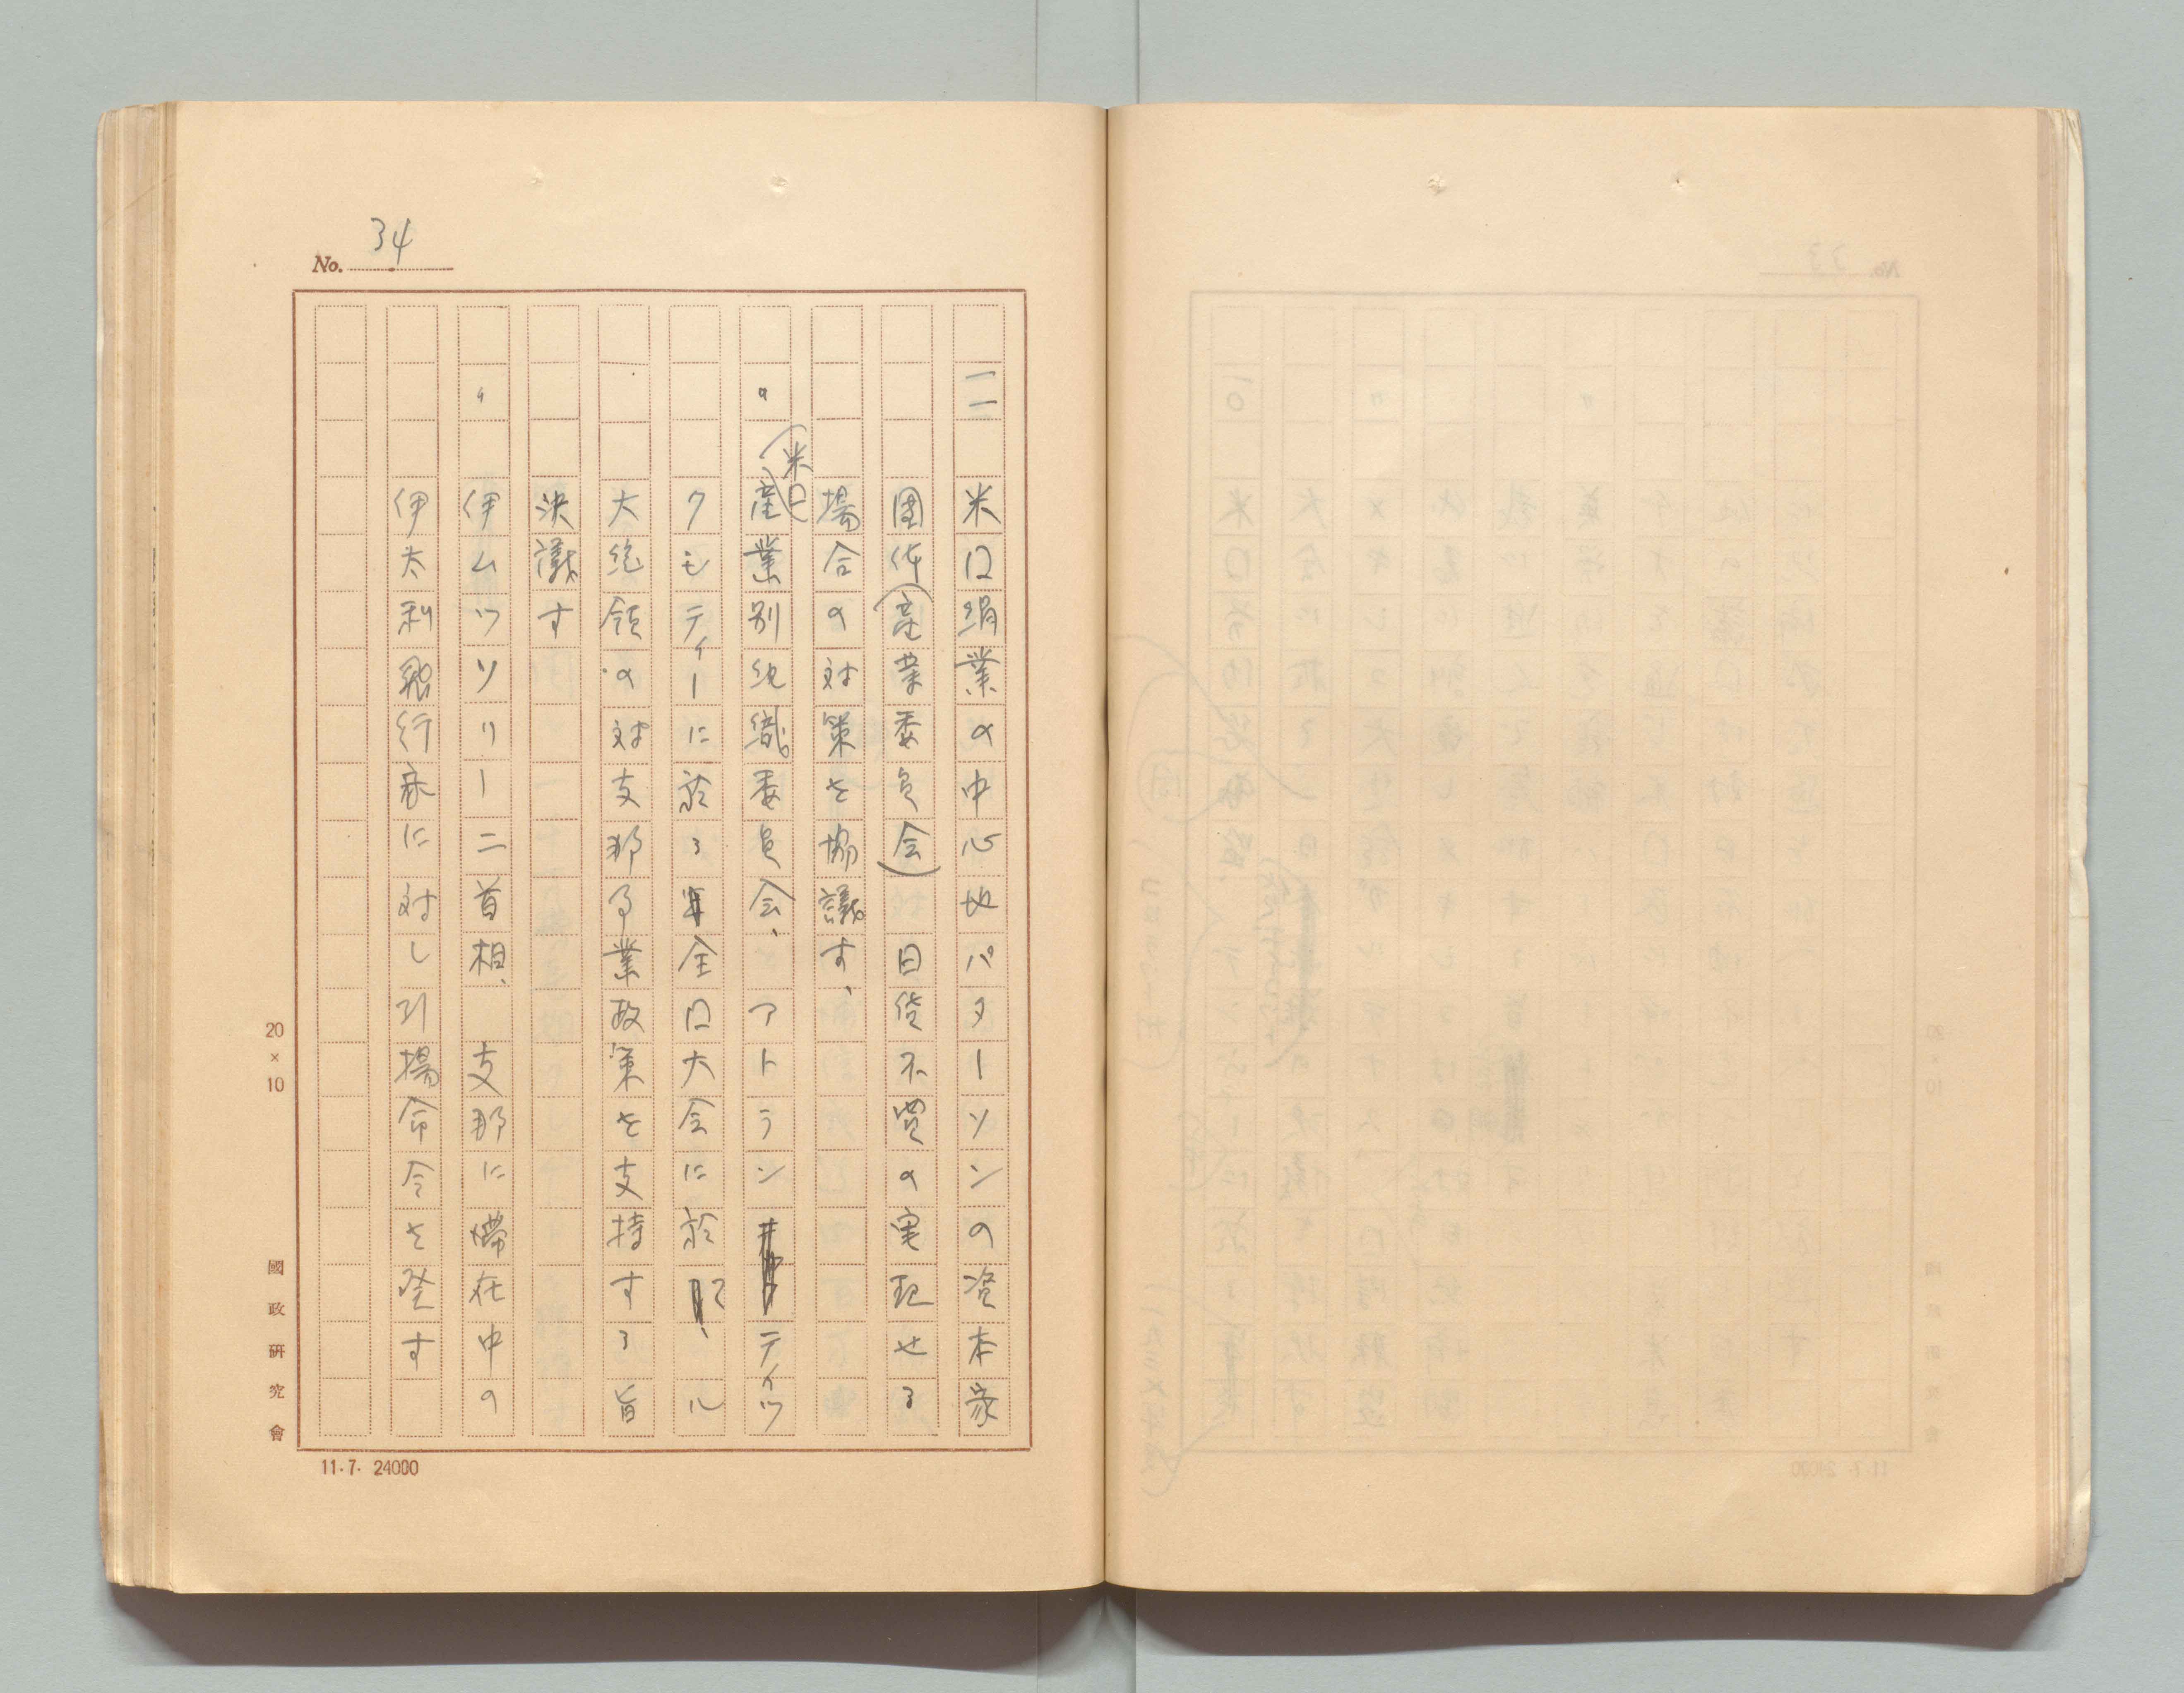 No. 34
一一 米国絹業の中心地パターソンの資本家
団体(産業委員会) 日貨不買の実現せる
場合の対策を協議す、
〃 (米国)産業別組織委員会、アトランティツ
クシティーに於る全国大会に於て、ル
大統領の対支那事業政策を支持する旨
決議す
〃 伊ムツソリーニ首相、 支那に滞在中の
伊太利飛行家に対し引揚命令を発す
20×10
國政研究會
11.7. 24000